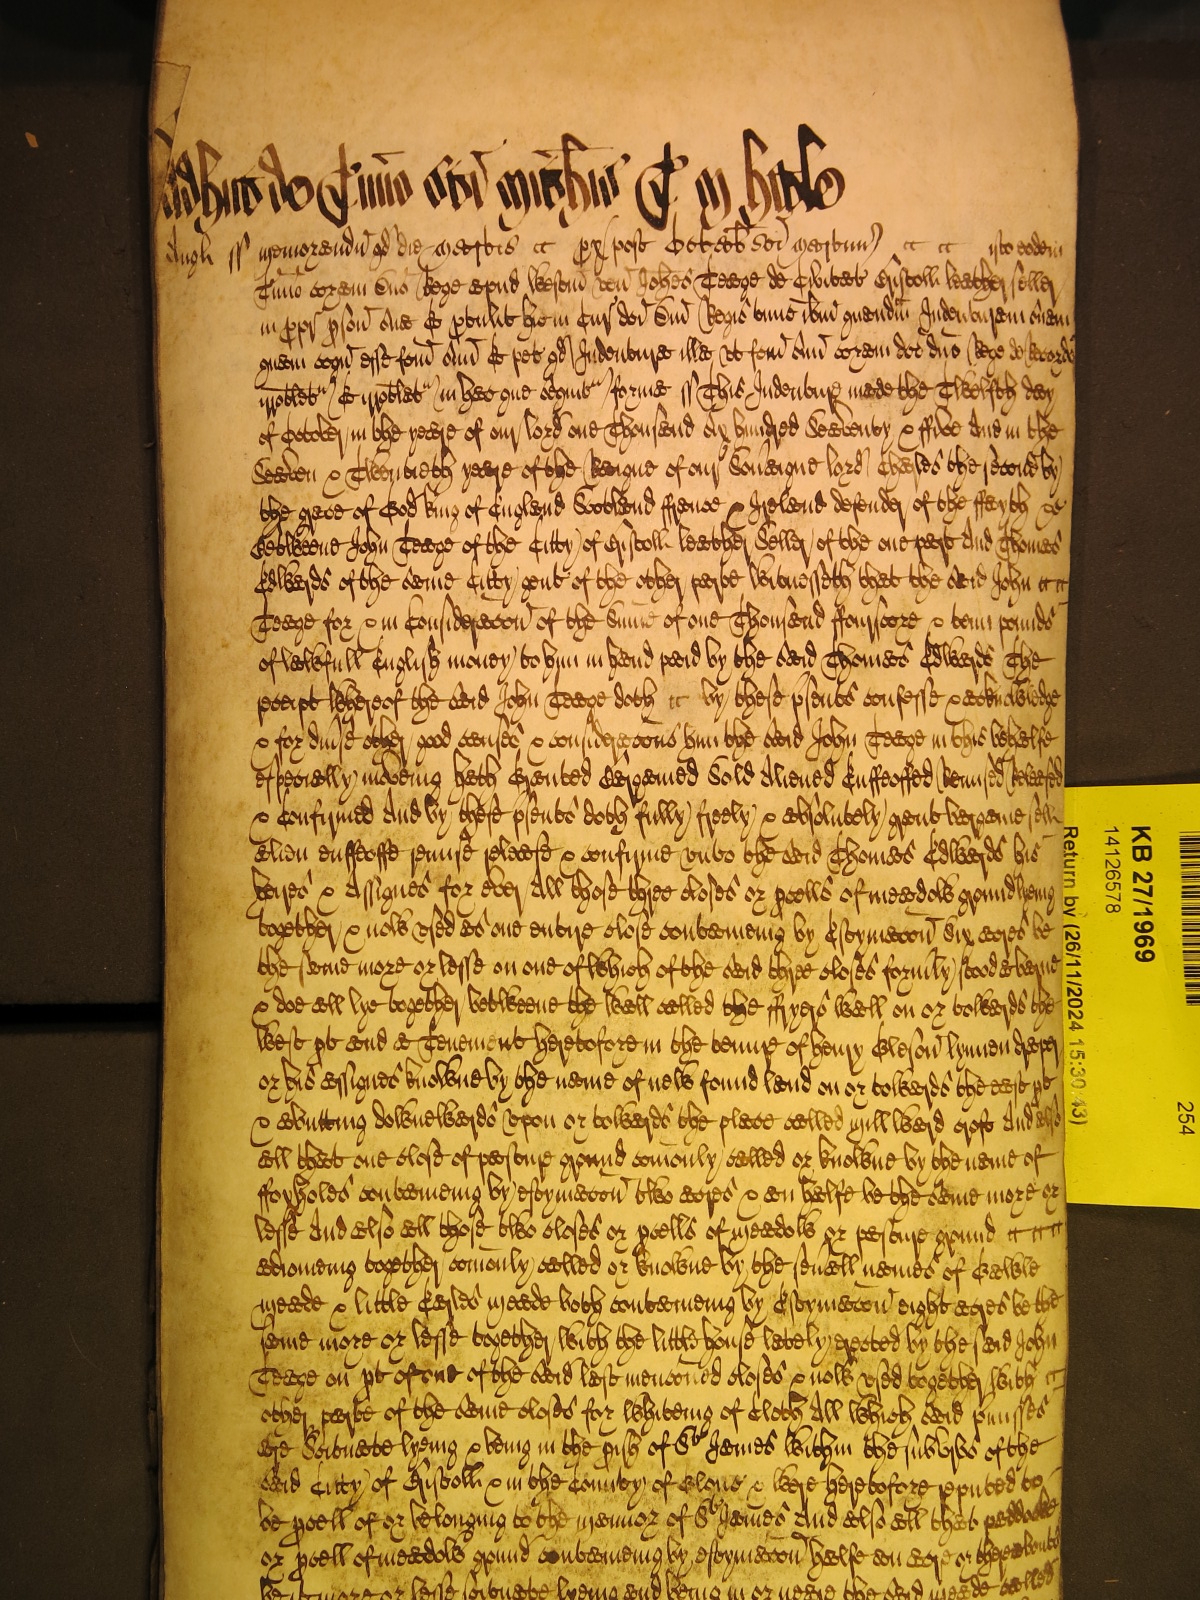 Adhuc de Termio Sci Michis
Angl ss Memorand qd die Martis px post Octab Sci Martini isto eodem
Timio coram Dno Rege apud Westm ven Johes Teage de Civitat Bristoll Leather seller
in ppr pson sua & ptulit hic in Cur dci Dni Regis tunc ibm quandm Indenturam suam
quam cogn esse fcm suu & pet qd Indentura illa ut fcm suu coram dco dno Rege de Recordo
irrotlet & irrotlat in hac que sequit forma ss This Indenture made the Twelfth day
of October in the yeare of our lord one Thousand six hundred Seaventy & ffive And in the
Seaven & Twentieth yeare of the Raigne of our Soveraigne lord Charles the second by
the grace of God King of England Scotland ffrance & Ireland defender of the ffayth &c
Betweene John Teage of the Citty of Bristoll leather Seller of the one part And Thomas
Edwards of the same Citty gent of the other parte Witnesseth that the said John
Teage for & in Consideracon of the Summ of one Thousand ffourscore & tenn pounds
of lawfull English money to him in hand paid by the said Thomas Edwards The
receipt whereof the said John Teage doth by these psents confesse & acknowledge
& for divse other good causes & consideracons him the said John Teage in this behalfe
especially moveing hath Granted Bargained Sold Aliened Enffeoffed Remised Released
& Confirmed And by these psents doth fully freely & absolutely grant bargaine sell
alien enffeoffe remise release & confirme unto the said Thomas Edwards his
heires & Assignes for ever All those three closes or pcells of meadow ground lyeing
together & now used as one entire close containeing by Estymacon six acres be
the same more or lesse on one of which of the said three closes formly stood a barne
& doe all lye together betweene the well called the ffryers well on or towards the
west pt and a Tenement heretofore in the tenure of henry Gleson lynnen draper
or his assignes knowne by the name of new found land on or towards the east pt
& abutting downewards upon or towards the place called Mill ward croft And also
all that one close of pasture ground comonly called or knowne by the name of
ffoxholes containeing by estymacon two acres & an halfe be the same more or
lesse And also all those two closes or pcells of meadow or pasture ground
adioineing together comonly called or knowne by the sevall names of
meade & little Earles meade both containeing by Estymacon eight acres be the
same more or lesse together with the little house lately erected by the said John
Teage on pt of one of the said last menconed closes & now used together with
other parte of the same closes for whiteing of Cloth All which said pmisses
are Scituate lyeing & being in the pish of St James within the suburbs of the
said Citty of Bristoll & in the County of Glouc & were heretofore reputed to
be pcell of or belonging to the mannor of St James And also all that paddocke
or pcell of meadow ground containeing by estymacon halfe an acre or thereabouts
be it more or lesse scituate lyeing and being in or neare the said meade called
KB 27/1969
14126578
Return by (26/11/2024 15:30:43)
254